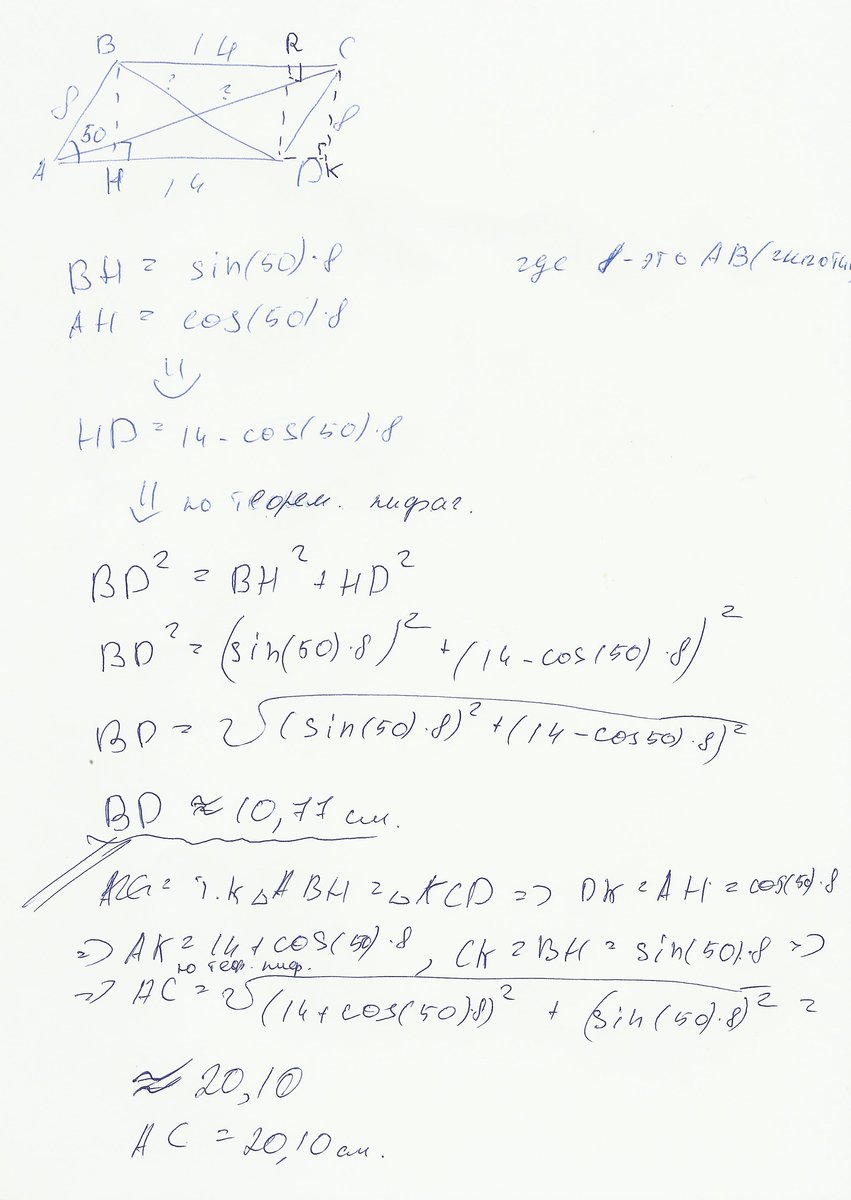 B 14 R C
8 ? ? 8
50
A H 14 D K
BH = sin(50)·8 где 8-это AB(гипотин
AH = cos(50)·8
⇓
HD = 14 - cos(50)·8
⇓ по теорем. пифаг.
BD² = BH² + HD²
BD² = (sin(50)·8)² + (14-cos(50)·8)²
BD = √(sin(50)·8)² + (14-cos50)·8)²
BD ≈ 10,77 см.
т.к △ABH = △KCD => DK = AH = cos(50)·8
=> AK = 14 + cos(50)·8, CK = BH = sin(50)·8 =>
по теор. пиф.
=> AC = √(14+cos(50)·8)² + (sin(50)·8)² =
≈ 20,10
AC = 20,10 см.